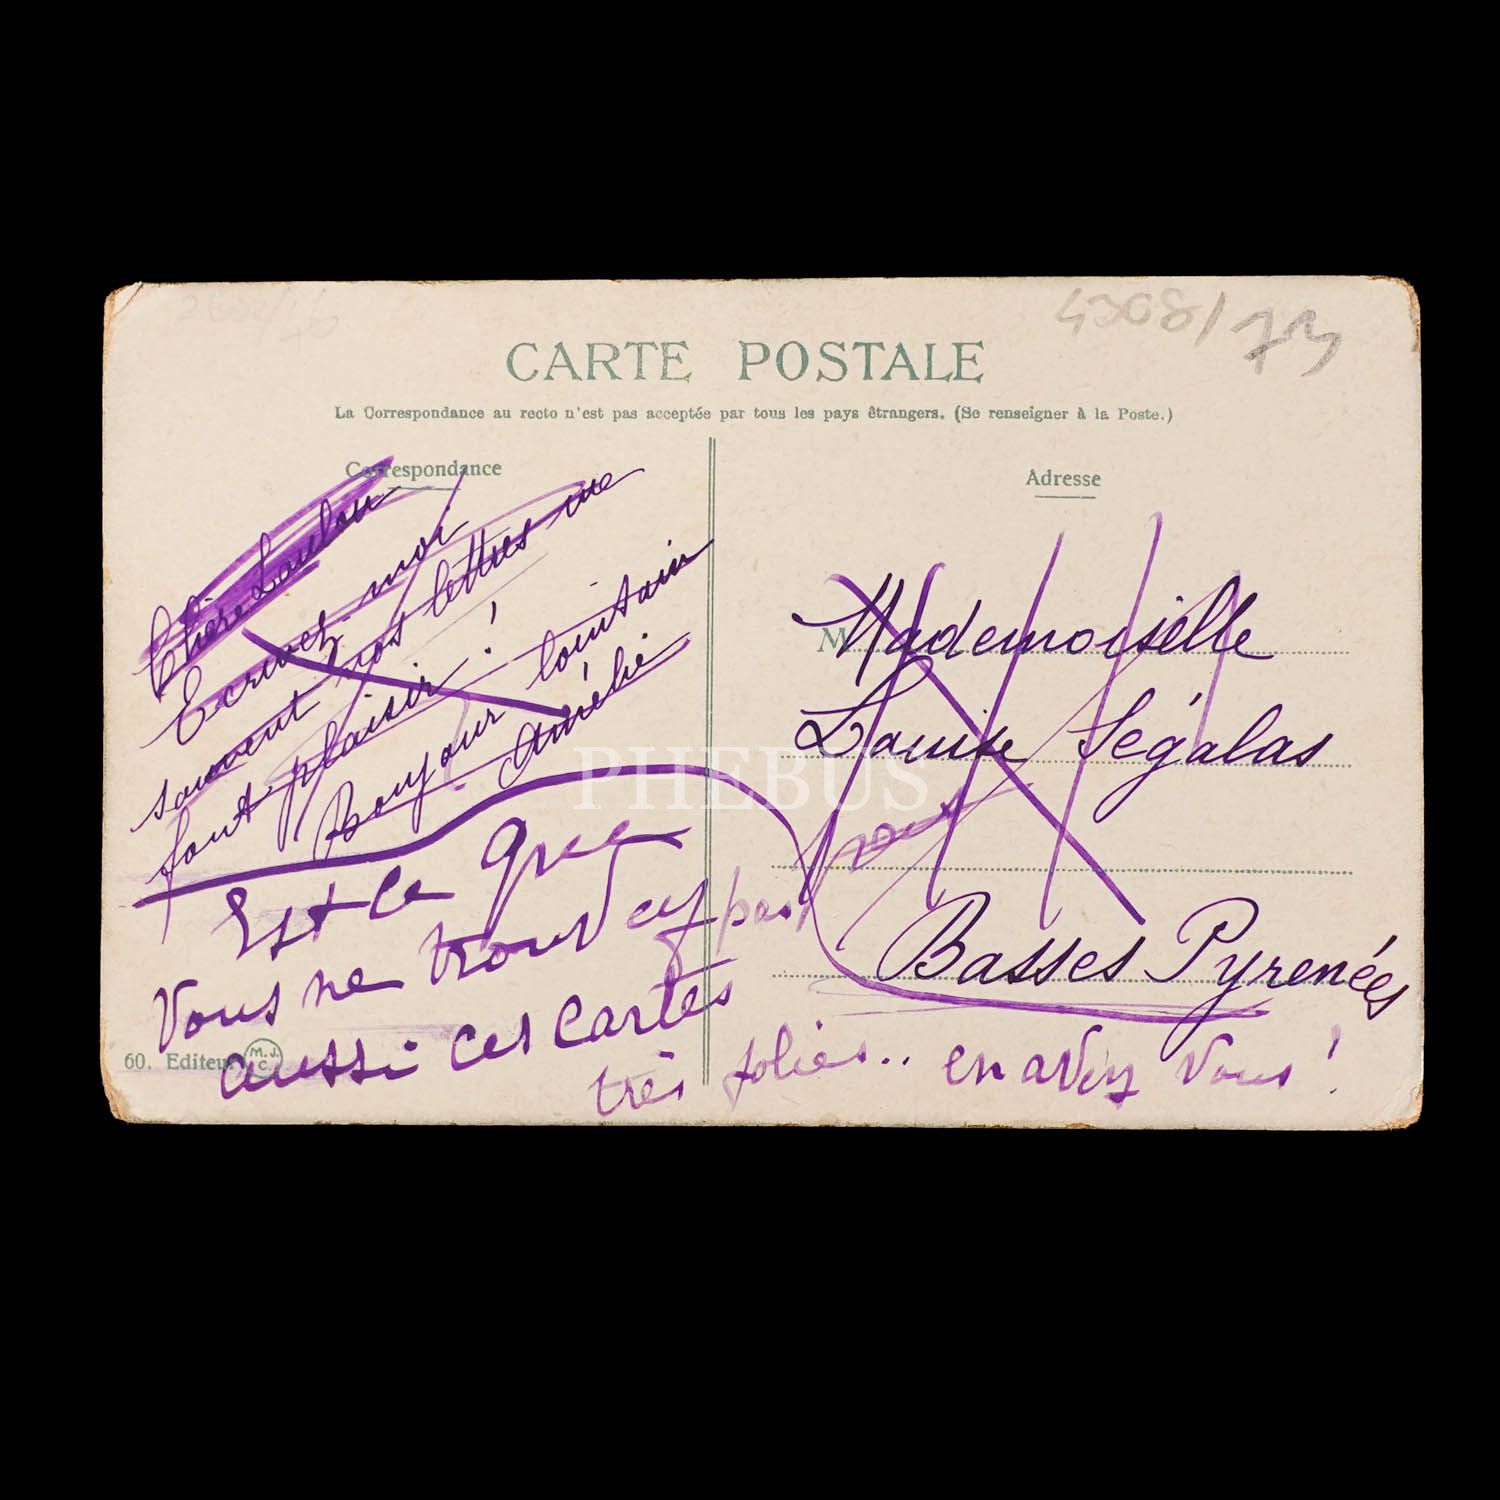 4308/73
CARTE POSTALE
La Correspondance au recto n'est pas acceptée par tous les pays étrangers. (Se renseigner à la Poste.)
Correspondance
Chère Loulou
Ecrivez moi
souvent vos lettres me
font plaisir !
Bonjour lointain
Amélie
Est ce que
Vous ne trouvez pas
aussi ces cartes
très jolies.. en avez vous !
60. Editeur M.J.C.
Adresse
M
Mademoiselle
Louise Ségalas
Basses Pyrenées
PHEBUS